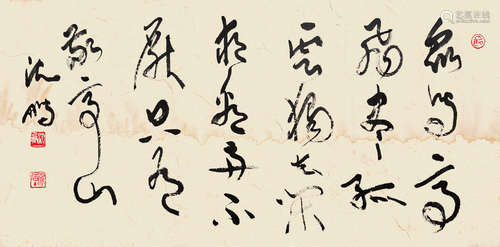 眾鳥高
飛盡孤
雲獨去閑
相看兩不
厭只有
敬亭山
沈鵬